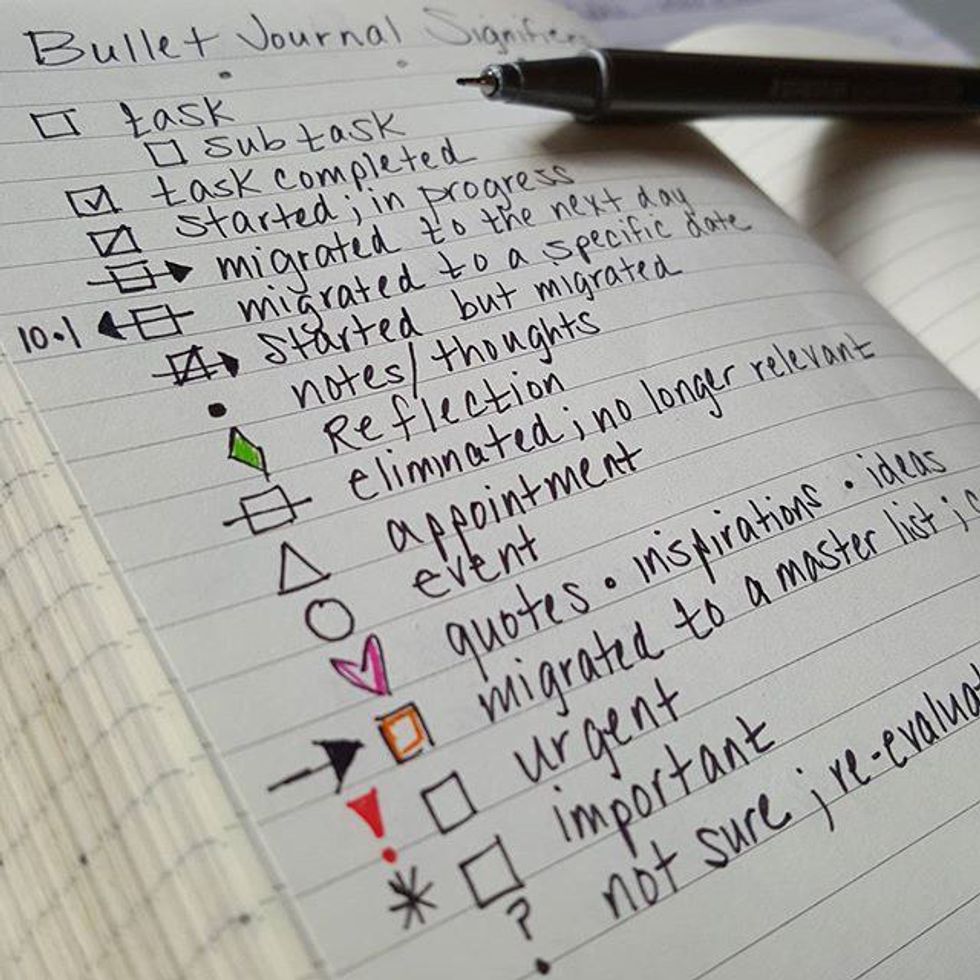 Bullet Journal Signifiers
task
subtask
task completed
started; in progress
migrated to the next day
10.1 migrated to a specific date
started but migrated
notes/thoughts
Reflection
elimnated; no longer relevant
appointment
event
quotes • inspirations • ideas
migrated to a master list;
! urgent
* important
? not sure; re-evaluat